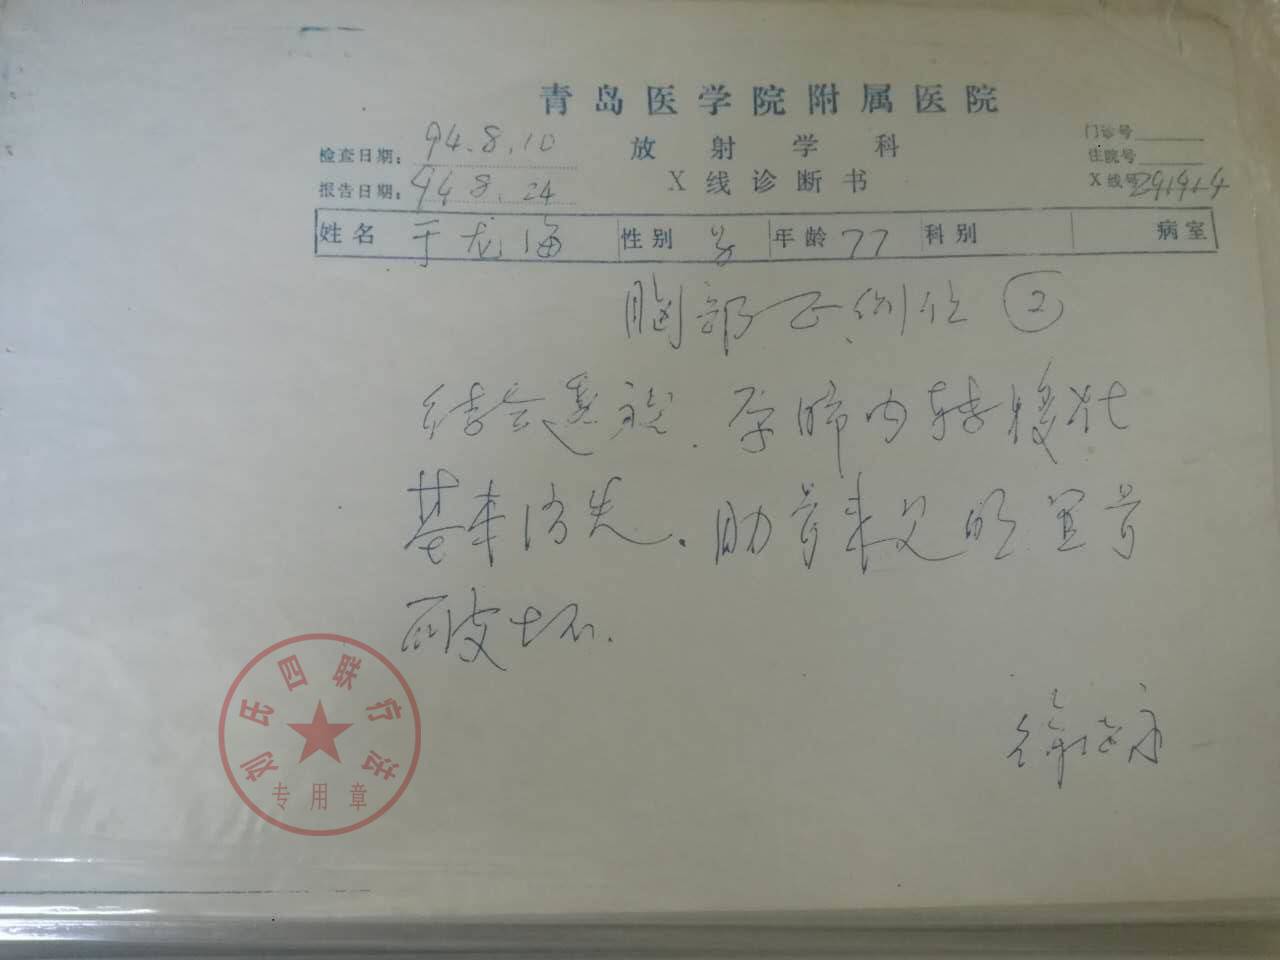 青岛医学院附属医院
检查日期: 94.8.10 放射学科 门诊号
住院号
报告日期: 94.8.24 X线诊断书 X线号
姓名 于龙海 性别 男 年龄 77 科别 病室
胸部正侧位 ②
结合透视.原肺内转移灶
基本消失.肋骨未见明显骨
破坏.
刘氏四联疗法
专用章